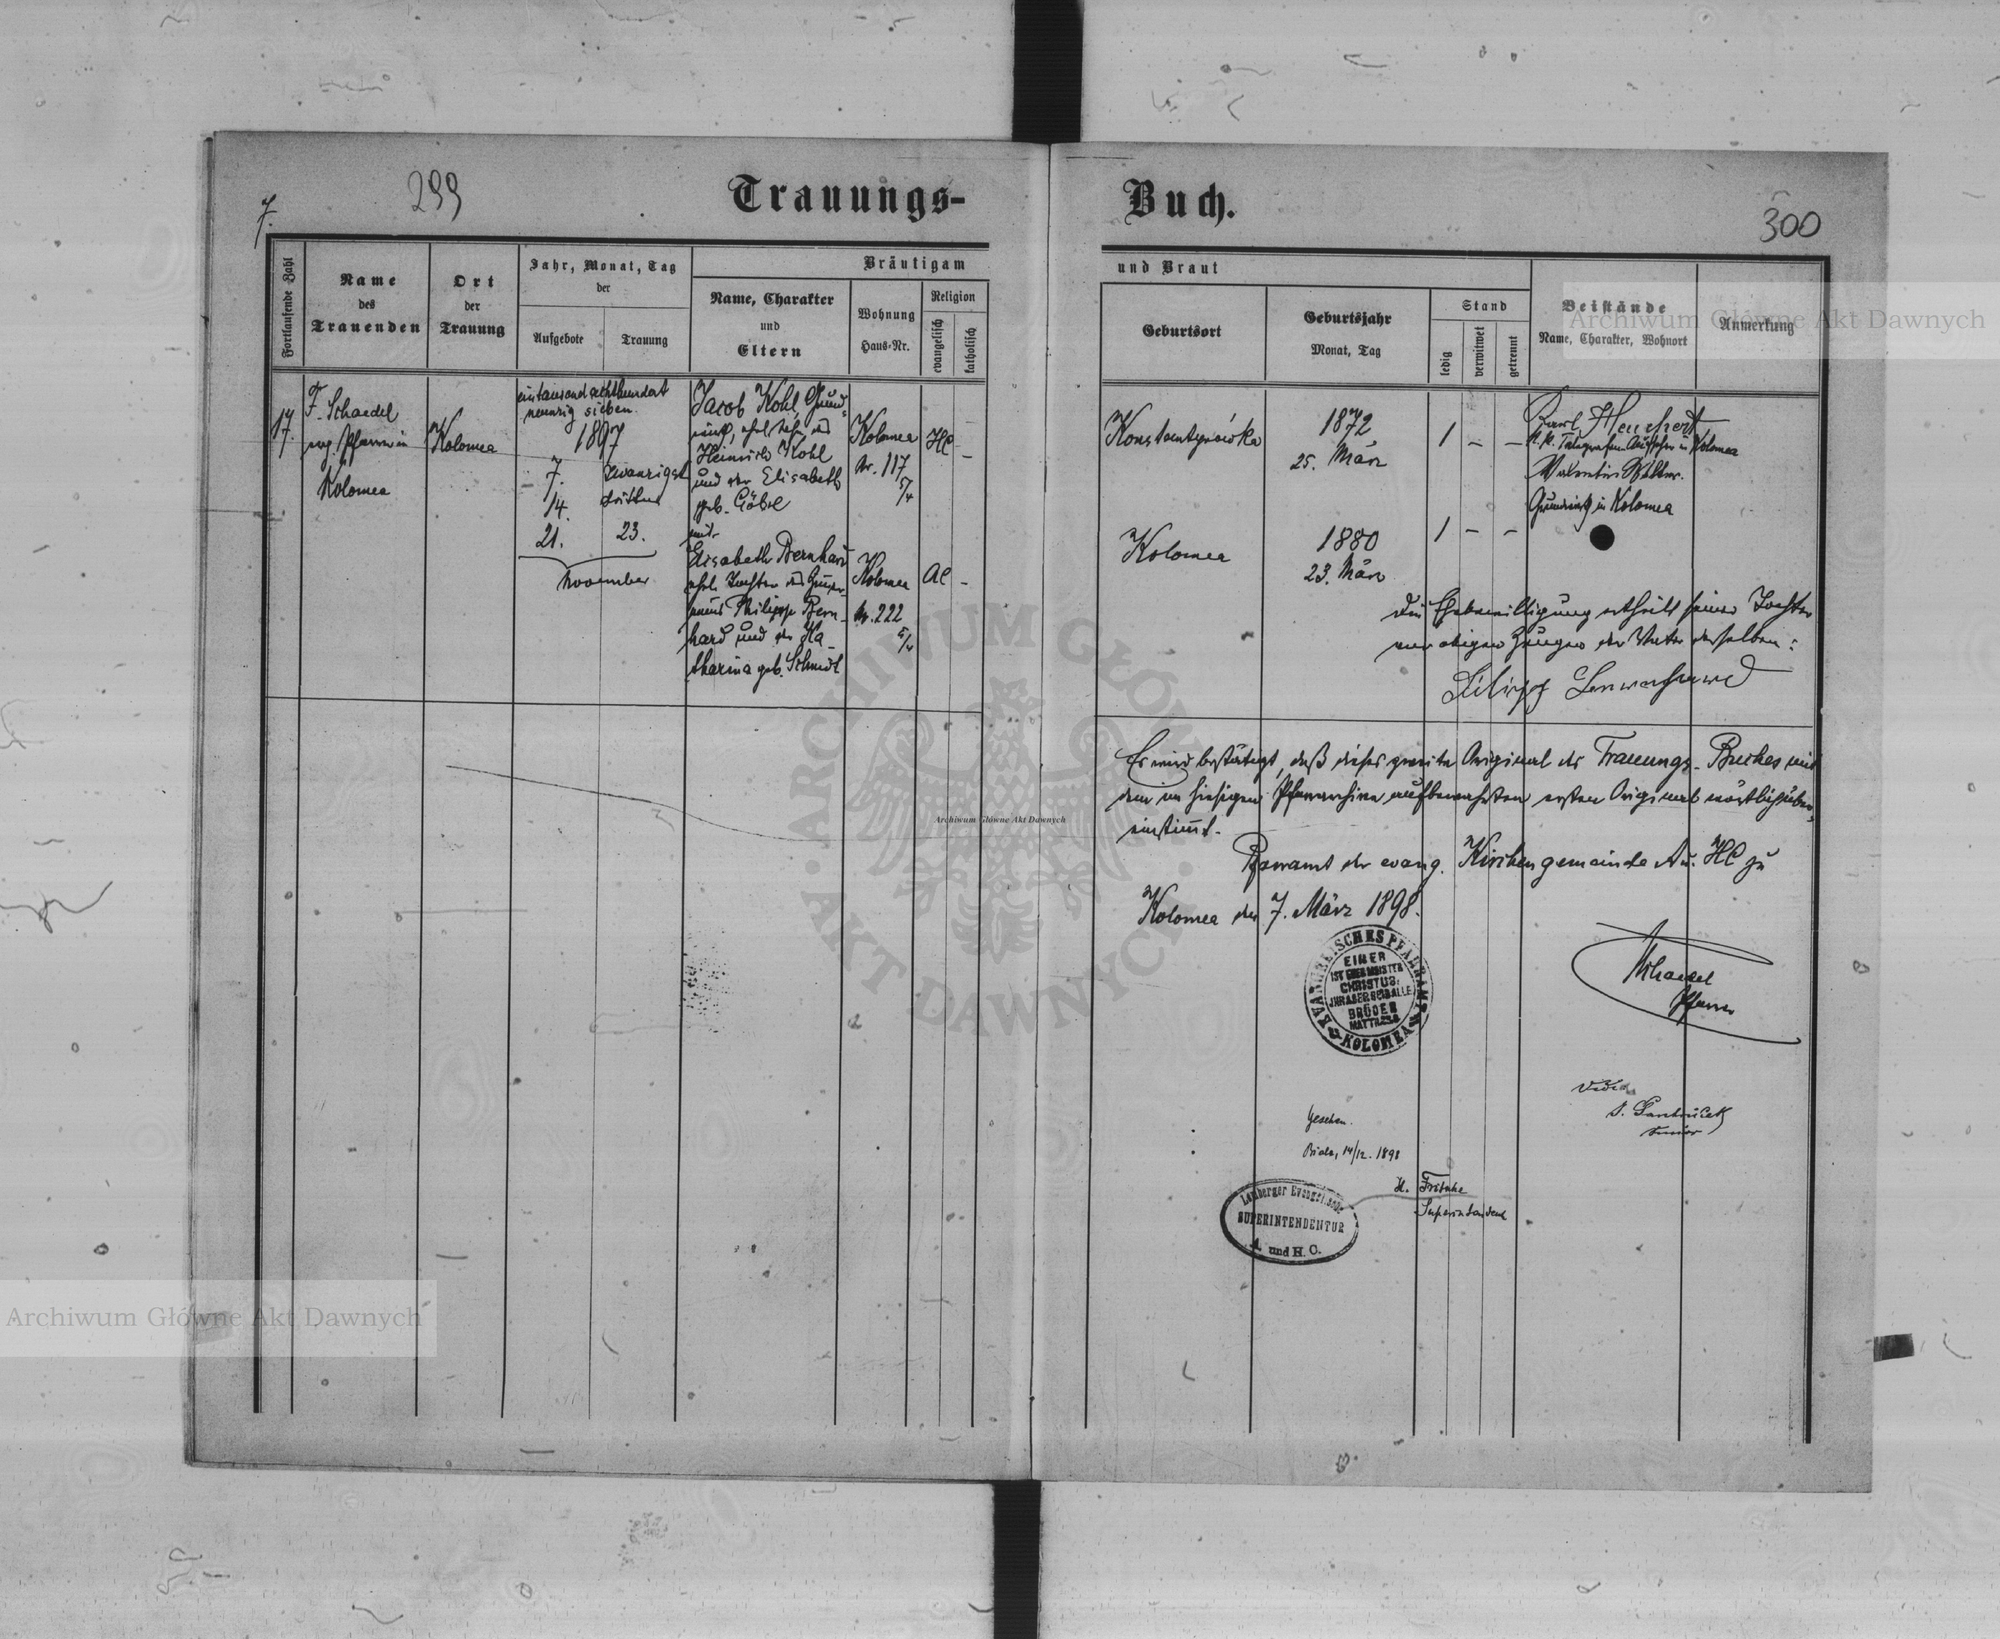 7.
299
Trauungs-
Buch.
300
Fortlaufende Zahl
Name
des
Trauenden
Ort
der
Trauung
Jahr, Monat, Tag
der
Aufgebote
Trauung
Bräutigam
Name, Charakter
und
Eltern
Wohnung
Haus-Nr.
Religion
evangelisch
katholisch
und Braut
Geburtsort
Geburtsjahr
Monat, Tag
Stand
ledig
verwitwet
getrennt
Beistände
Name, Charakter, Wohnort
Anmerkung
17.
F. Schaedel
evg. Pfarrer in
Kolomea
Kolomea
eintausend achthundert
neunzig sieben
1897
7.
14.
21.
zwanzigst
dritten
23.
November
Jacob Kohl, Grund-
wirth, ehel. Sohn des
Heinrich Kohl
und der Elisabeth
geb. Göbel
mit
Elisabeth Bernhard
ehel. Tochter des
Philipp Bern-
hard und der Ka-
tharina geb. Schmidt
Kolomea
Nr. 117
HC
–
Kolomea
Nr. 222
AC
–
Konstantynówka
1872
25. März
1 – –
Karl
k. k. Telegrafen Aufseher in Kolomea
Valentin
Grundwirth in Kolomea
Kolomea
1880
23. März
1 – –
Die Ehebewilligung ertheilt seiner Tochter
vor obigen Zeugen der Vater derselben:
Es wird bestätigt, daß dieses zweite Original des Trauungs-Buches mit
dem im hiesigen Pfarrarchive aufbewahrten ersten Original wörtlich über-
einstimmt.
Pfarramt der evang. Kirchengemeinde A. u. HC zu
Kolomea den 7. März 1898.
EVANGELISCHES PFARRAMT KOLOMEA
EINER
IST EUER MEISTER
CHRISTUS
IHR ABER SEID ALLE
BRÜDER
MATTH. 23,8
Schaedel
Pfarrer
Vidi
Senior
Gesehen.
Biala, 14/12. 1898
H. Fritsche
Superintendent
Lemberger Evangelische
SUPERINTENDENTUR
A. und H. C.
Archiwum Główne Akt Dawnych
Archiwum Główne Akt Dawnych
Archiwum Główne Akt Dawnych
ARCHIWUM GŁÓWNE AKT DAWNYCH